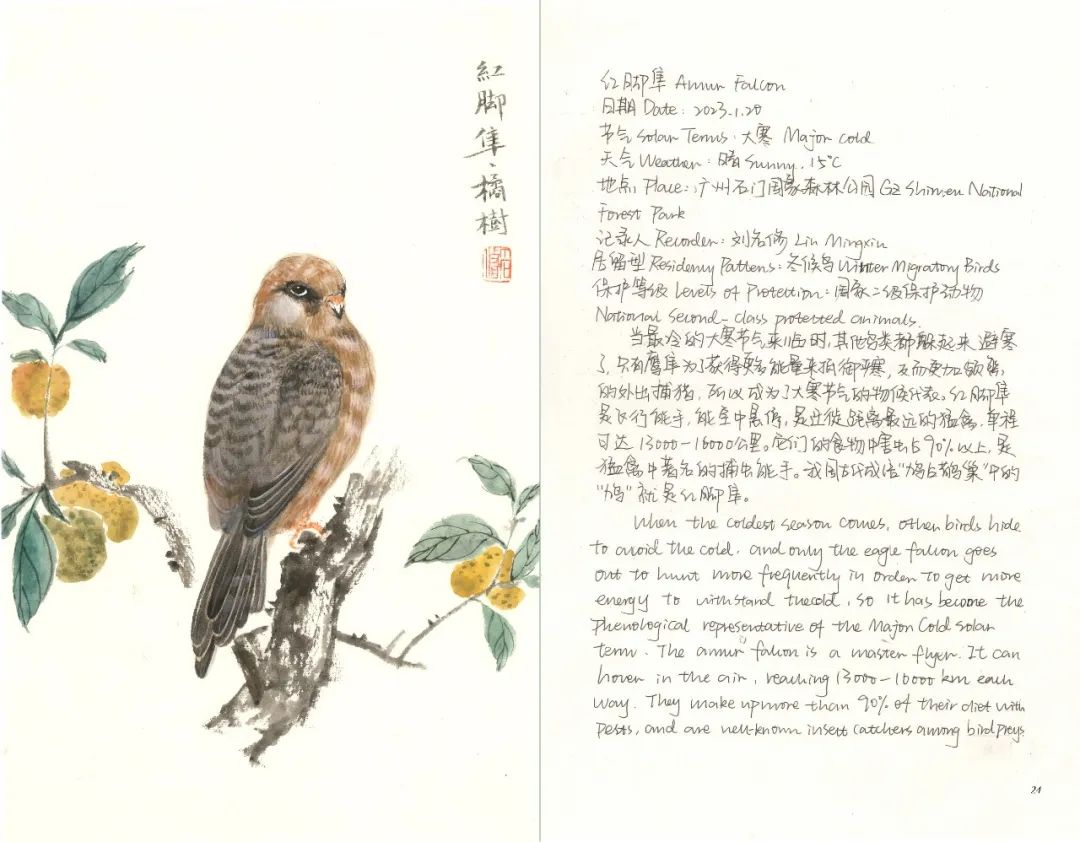 紅脚隼、橘樹
红脚隼 Amur Falcon
日期 Date: 2023.1.20
节气 Solar Terms: 大寒 Major cold
天气 Weather: 晴 Sunny. 15℃
地点 Place: 广州石门国家森林公园 GZ Shimen National
Forest Park
记录人 Recorder: 刘名修 Liu Mingxiu
居留型 Residency Pattens: 冬候鸟 Winter Migratory Birds
保护等级 Levels of Protection: 国家二级保护动物
National Second-class protected animals.
当最冷的大寒节气来临时,其他鸟类都躲起来避寒
了,只有鹰隼为了获得更多能量来抵御严寒,反而更加频繁
的外出捕猎,所以成为了大寒节气的物候代表。红脚隼
是飞行能手,能空中悬停,是迁徙距离最远的猛禽,单程
可达13000-16000公里。它们的食物中害虫占90%以上,是
猛禽中著名的捕虫能手。我国古代成语“鸠占鹊巢”中的
“鸠”就是红脚隼。
When the coldest season comes, other birds hide
to avoid the cold. and only the eagle falcon goes
out to hunt more frequently in order to get more
energy to withstand the cold, so it has become the
Phenological representative of the Major Cold solar
term. The amur falcon is a master flyer. It can
hover in the air, reaching 13000-16000 km each
way. They make up more than 90% of their diet with
pests, and are well-known insect catchers among bird preys
21